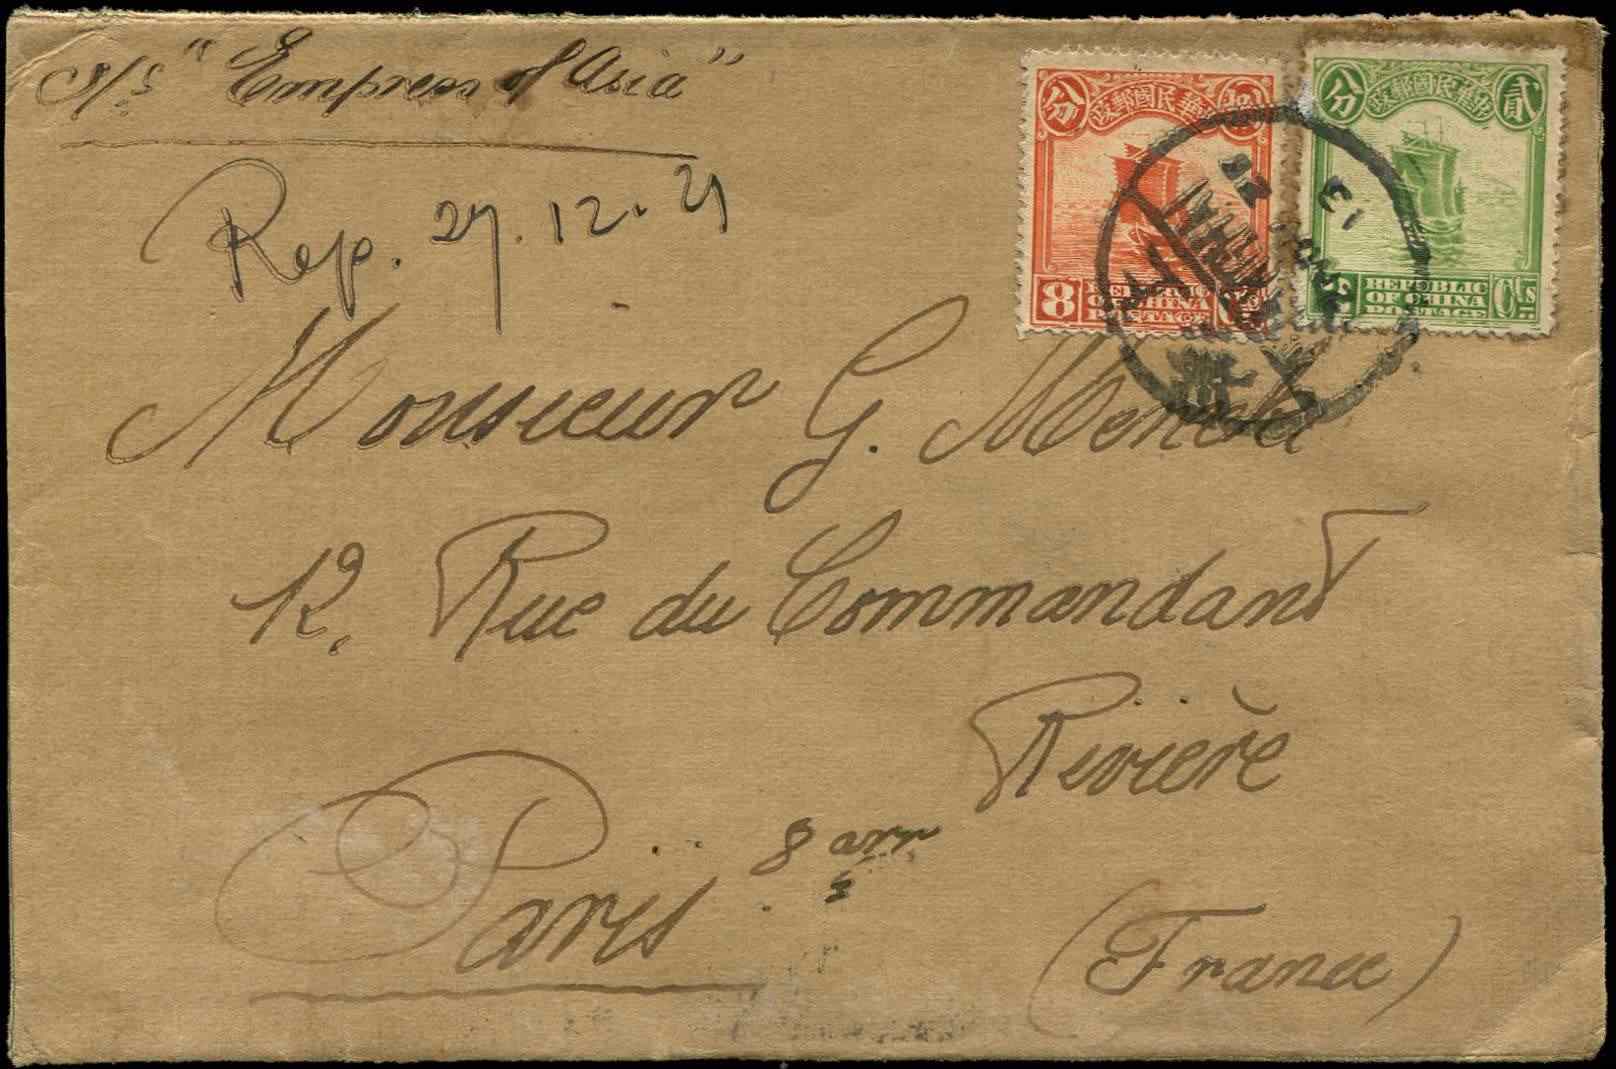 S/S "Empress of Asia"
Rep. 27.12.21
Monsieur G.
12, Rue du Commandant
Rivière
Paris 8 arr
(France)
分 中華民國郵政 捌
8 REPUBLIC OF CHINA POSTAGE Cts
分 中華民國郵政 貳
2 REPUBLIC OF CHINA POSTAGE Cts